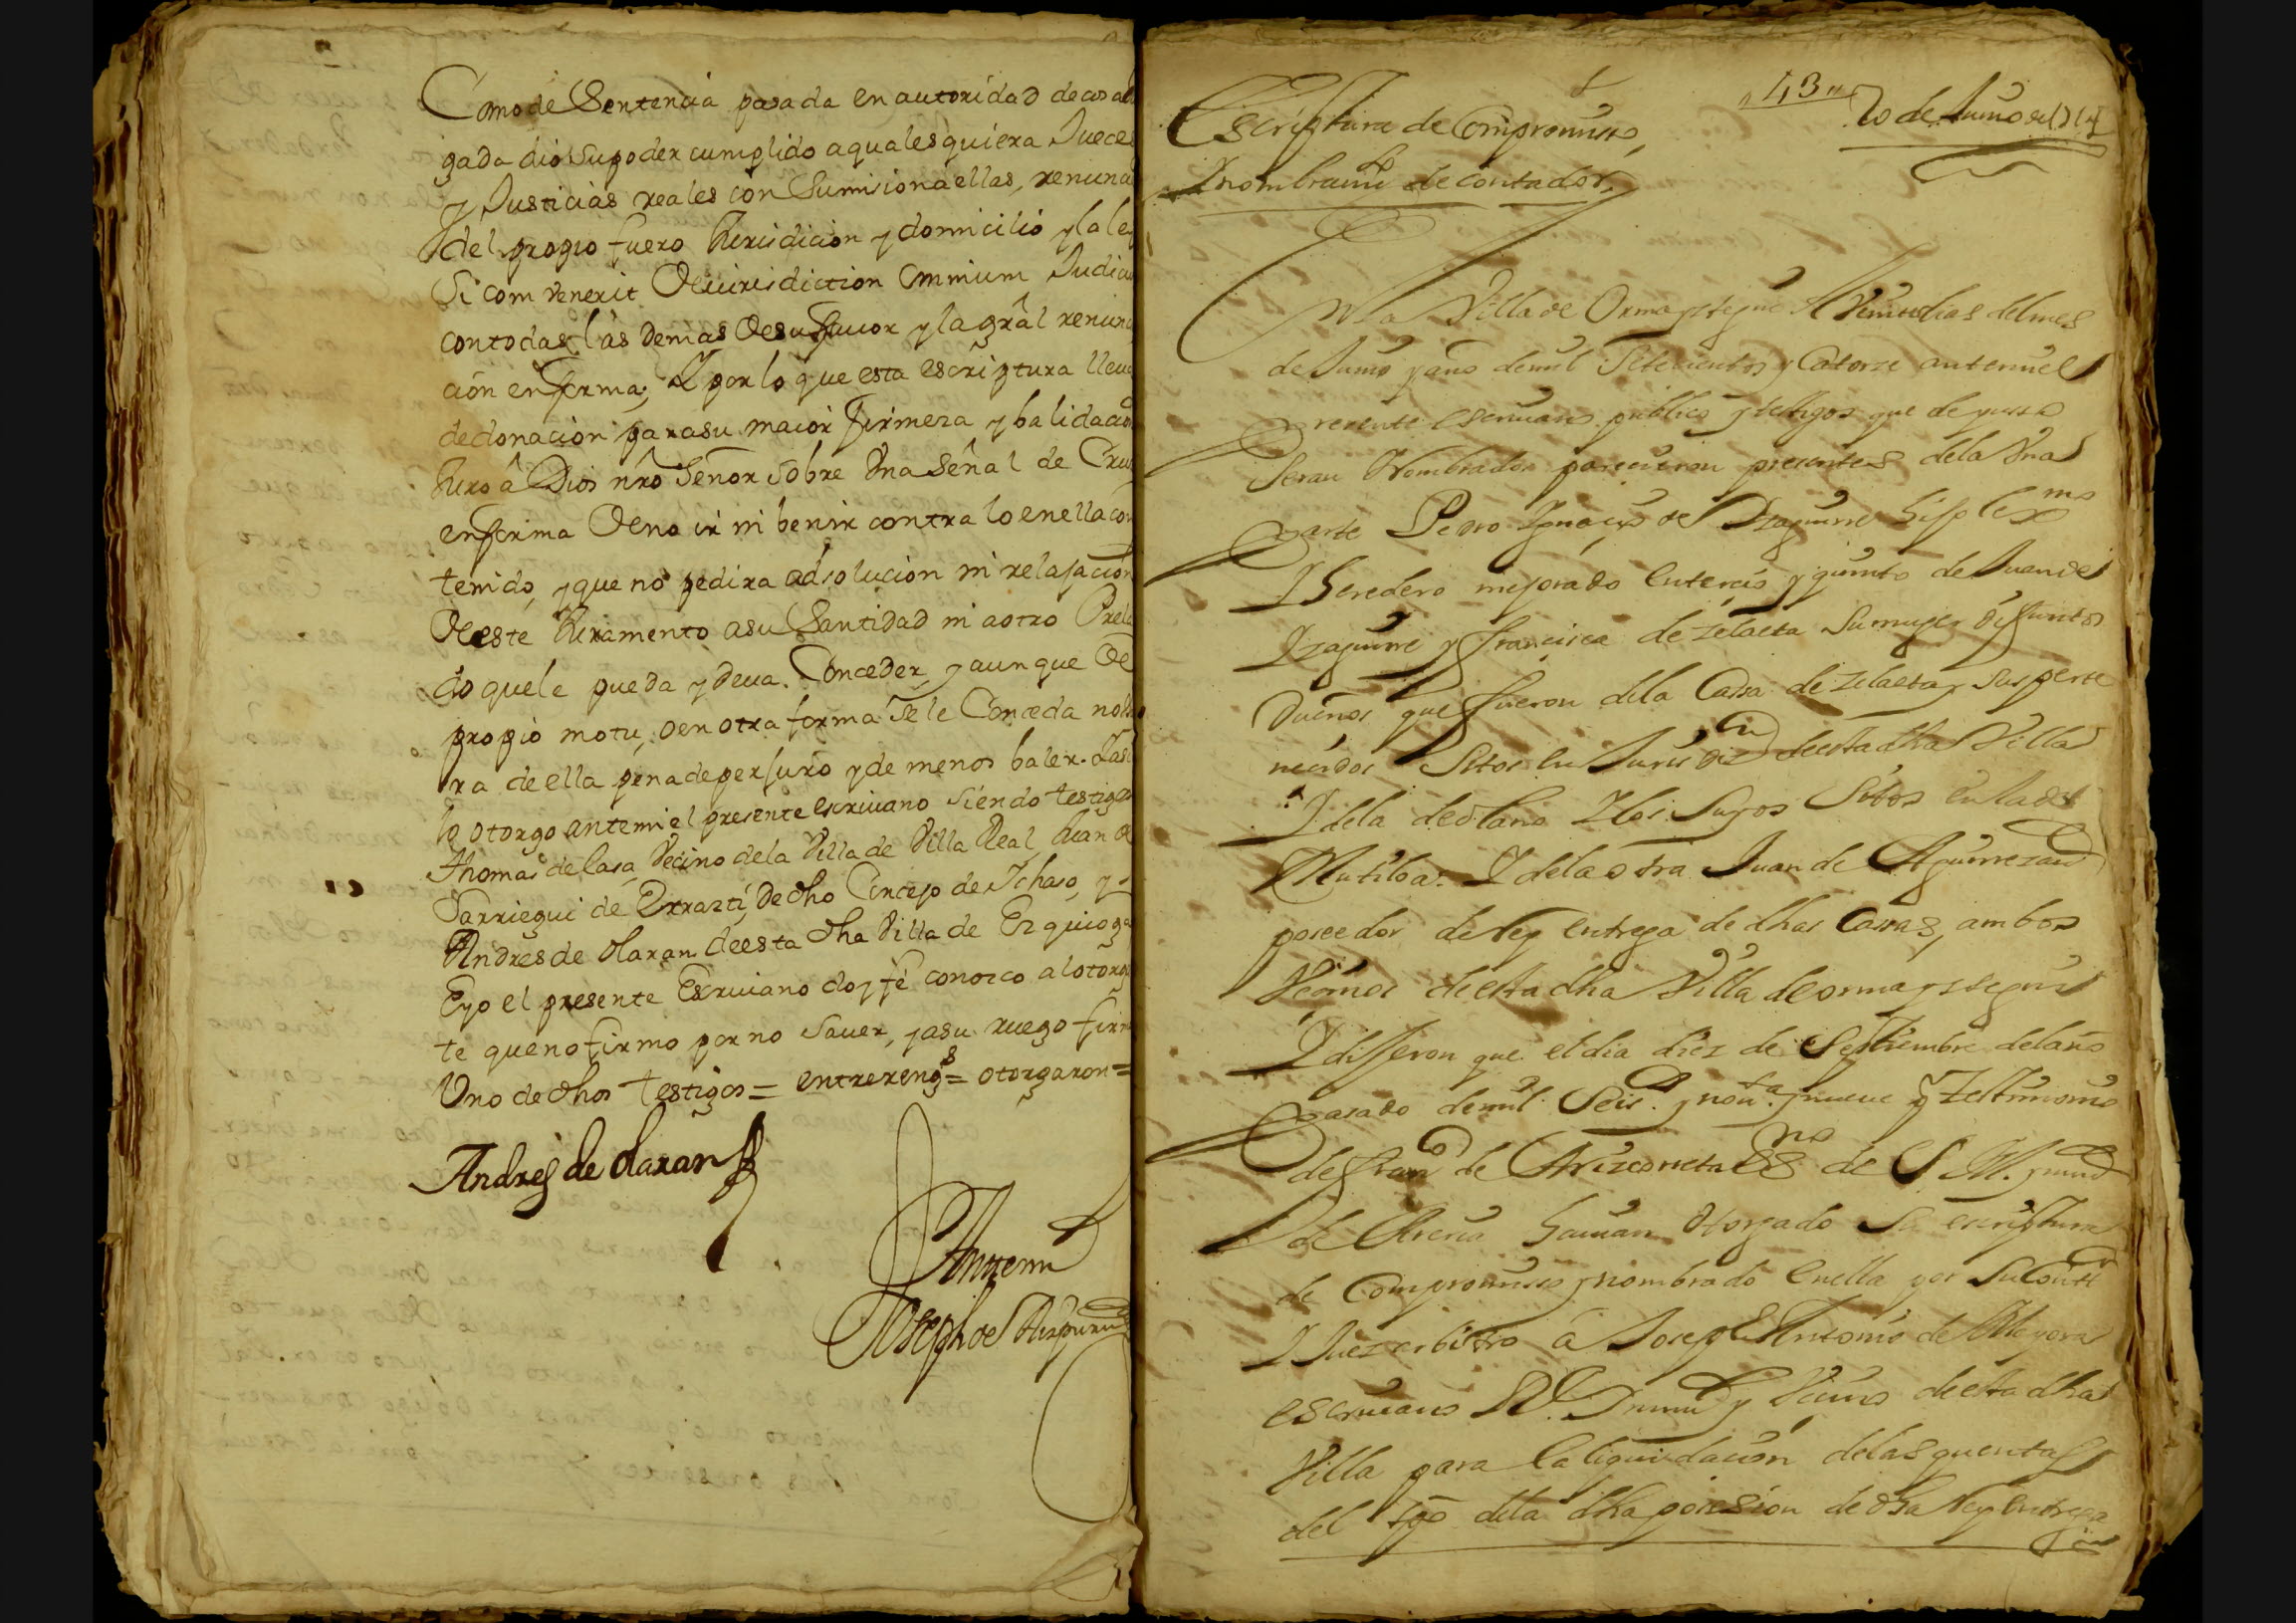 Como de Sentencia pasada en autoridad de cosa
gada dio su poder cumplido a qualesquiera Jueces
y Justicias reales con Sumision a ellas, renun
del propio fuero Jurisdicion y domicilio y la le
Si com venerit De iurisdiction omnium Judicu
con todas las demas de su fauor y la gral renun
cion en forma; Y por lo que esta escriptura lleua
de donacion para su maior firmeza y balidacio
Juro â Dios nrô Señor Sobre Vna Señal de Cru
en forma De no ir ni benir contra lo en ella con
tenido, y que no pedira adsolucion ni relajacion
De este Juramento a su Santidad ni a otro Prela
do que le pueda y deua Conceder, y aunque De
propio motu, o en otra forma Se le Conceda no
ra de ella pena de perjuro y de menos baler. Y asi
lo otorgo ante mi el presente escriuano siendo testigos
Thomas de Casa, Vecino de la Villa de Villa Real, Juan de
Sarriegui de Errazti, de dho Concejo de Ichaso, y
Andres de Olaran de esta dha Villa de Ezquioga
E yo el presente Escriuano doy fe conozco al otorg
te que no firmo por no Sauer, y a su ruego firm
Vno de dhos testigos = entrerengs = otorgaron =
Andres de Olaran
Ante mi
Joseph de Aizpuru
43
20 de Junio de 1714
Escriptura de Compromisso,
Y nombramto de contador,
En la Villa de Ormayztegui A Veinte dias del mes
de Junio y año de mil Setecientos y Catorze ante mi el
Presente escriuano publico y testigos que de yusso
Seran Nombrados parecieron presentes de la Vna
parte Pedro Ignacio de Yzaguirre hijo lexmo
Y heredero mejorado en tercio y quinto de Juan de
Yzaguirre y Francisca de Zelaeta Su muger difuntos
Dueños que fueron de la Cassa de Zelaeta y Sus perte
necidos Sitos en Jurisdizn de esta dha Villa
Y de la de Olano Y los Suyos Sitos en la de
Mutiloa. Y de la otra Juan de Aguirrezau
poseedor de Rey entrega de dhas Cassas, ambos
Vecinos de esta dha Villa de ormayztegui
Y dijeron que el dia diez de Septiembre del año
Pasado de mil Seis. y nouta y nueue por Testimonio
de Franco de Arizcorreta essno de S. M. y nume
de Areria hauian Otorgado Su escriptura
de Compromisso y nombrado en ella por Su Contt
Y Juez arbitro â Joseph Antonio de Mayora
escriuano Rl. y numl y Vecino de esta dha
Villa para la liquidacion de las quentas
del tpo de la dha posession de dha Rey entrega